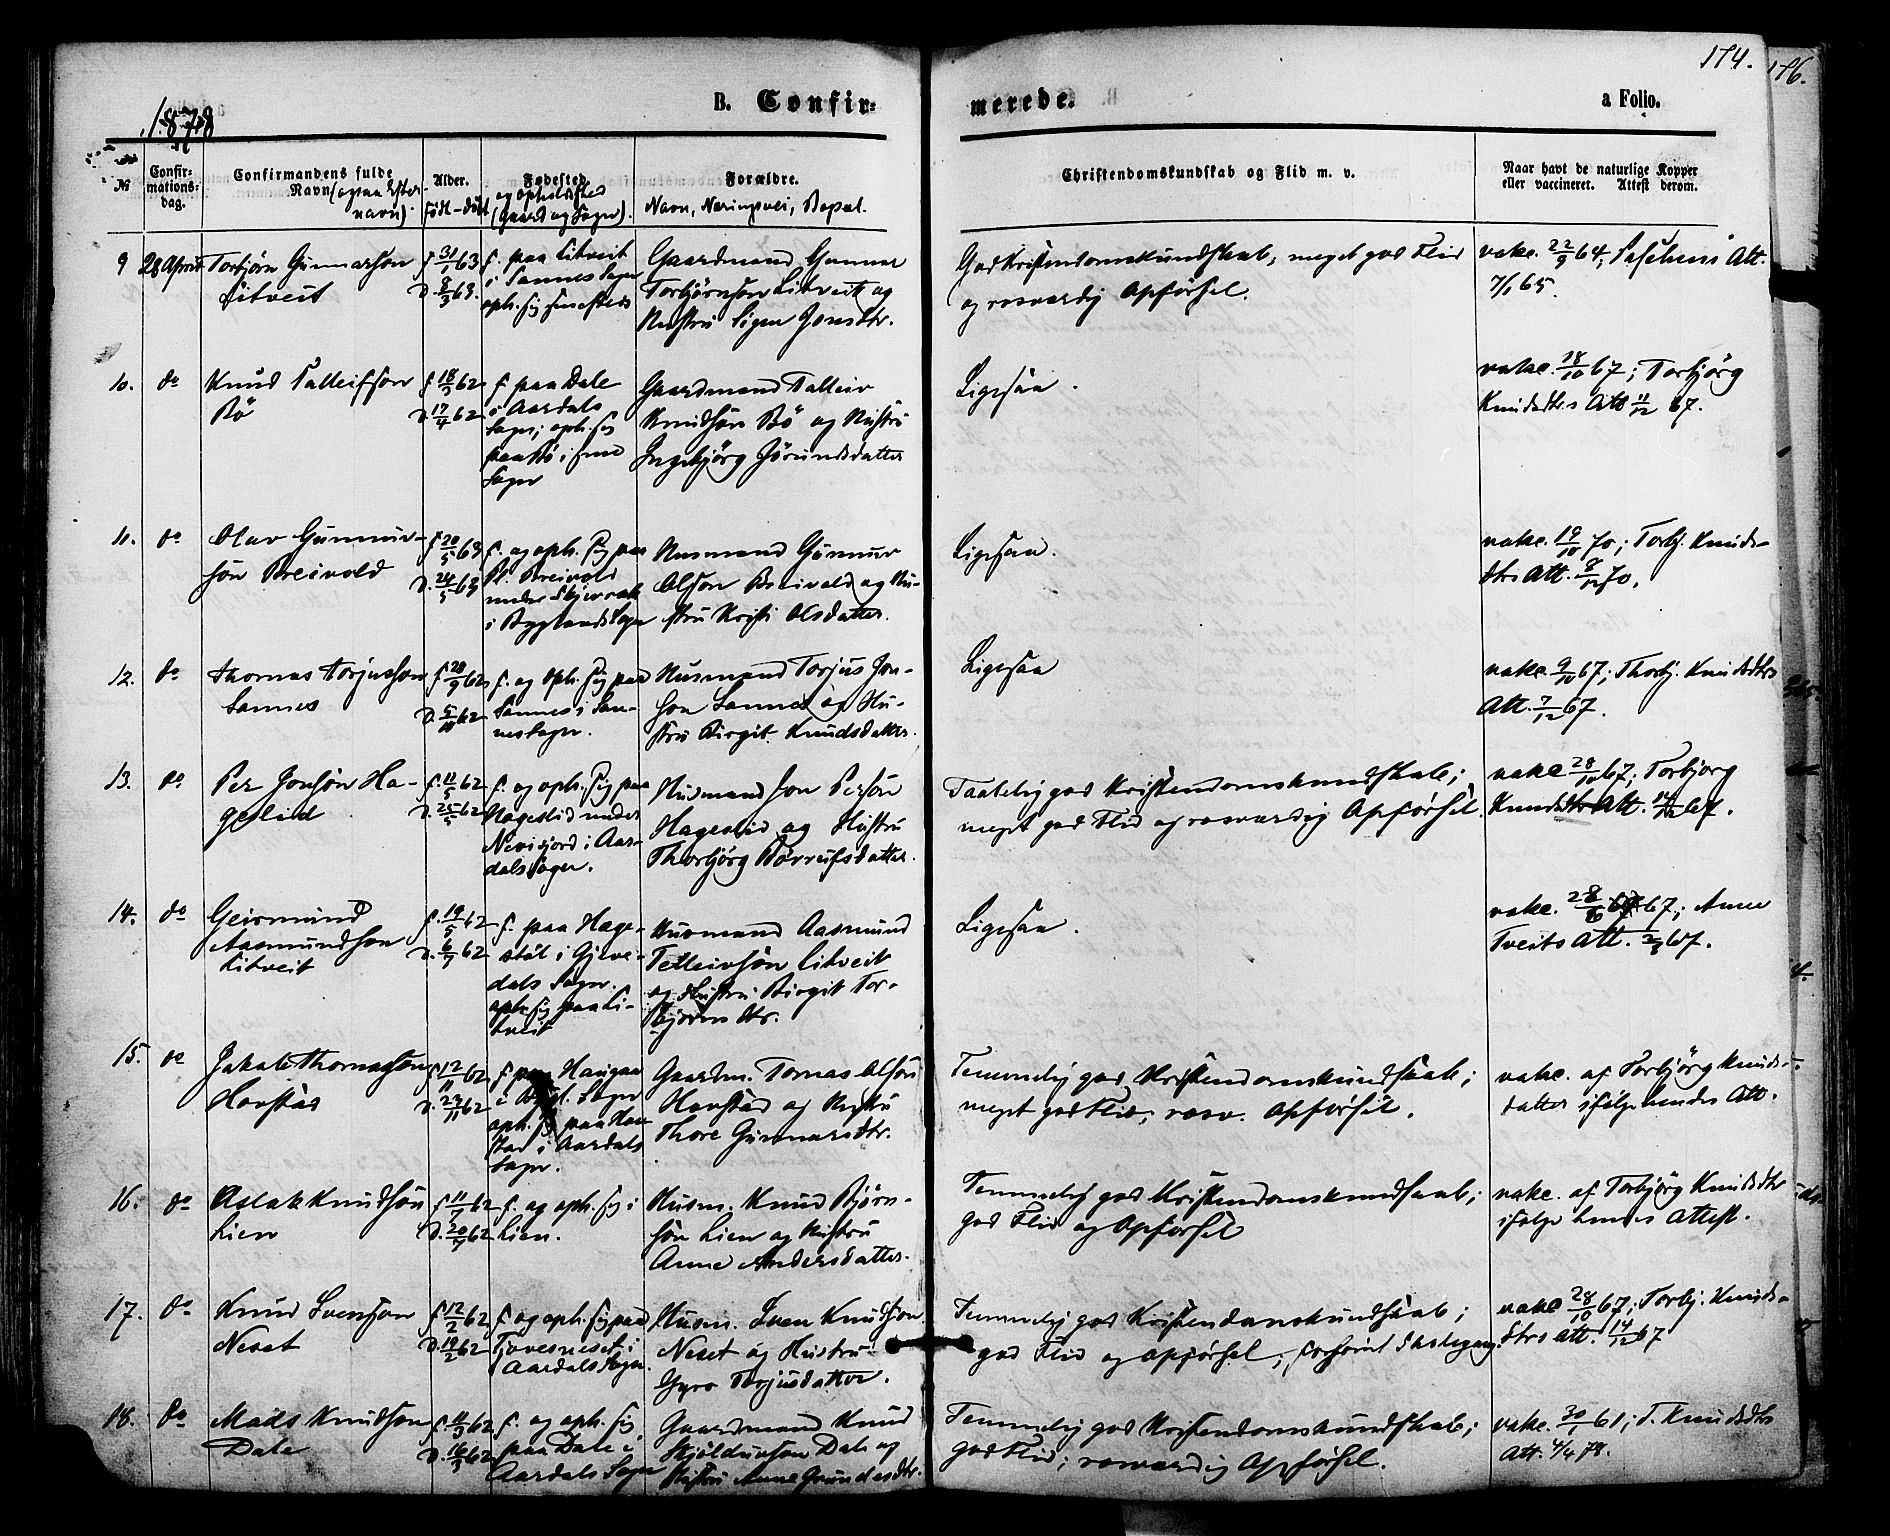 174.
176.
1878
B. Confir-
merede.
a Folio.
№
Confir-
mations-
dag.
Confirmandens fulde
Navn (ogsaa Efter-
navn).
Alder.
født - døbt
Fødested
og Opholdssted
(Gaard og Sogn).
Forældre.
Navn, Næringsvei, Bopæl.
Christendomskundskab og Flid m. v.
Naar havt de naturlige Kopper
eller vaccineret. Attest derom.
9
28 April
Torbjörn Gunnarson
Litveit
f. 31/1 63
D. 8/3 63.
f. paa Litveit
i Sannes Sogn
oph. sig sammesteds
Gaardmand Gunnar
Torbjörnson Litveit og
Hustru Sigen Jonsdtr.
God Kristendomskundskab, meget god Flid
og rosværdig Opførsel.
vakc. 22/9 64; Att.
7/1 65.
10.
do
Knud Talleifson
Bö
f. 18/3 62
D. 17/4 62
f. paa Dale
i Aardals
Sogn; oph. sig
paa Bö i samme
Sogn
Gaardmand Talleiv
Knudsön Bö og Hustru
Ingebjörg Jörundsdatter
Ligesaa.
vakc. 18/10 67; Torbjörg
Knudsdtrs Att 11/12 67.
11.
do
Olav Gunnuv-
sön Breivold
f. 20/5 63
D. 24/5 63
f. og oph. sig paa
Pl. Breivold
under
i Byglands Sogn
Husmand Gunnuv
Olson Breivold og Hu-
stru Kristi Olsdatter.
Ligesaa.
vakc. 19/10 70; Torbj. Knuds-
dtrs Att. 8/12 70.
12.
do
Thomas Torjusson
Sannes
f. 28/9 62
D. 5/10 62
f. og oph. sig paa
Sannes i San-
nes Sogn.
Husmand Torjus Jon-
son Sannes og Hu-
stru Birgit Knudsdatter.
Ligesaa
vakc. 9/10 67; Thorbj. Knudsdtrs
Att. 7/12 67.
13.
do
Per Jonsön Ha-
geslid
f. 11/5 62
D. 25/5 62
f. og oph. sig paa
Hageslid under
i Aar-
dals Sogn.
Husmand Jon Persön
Hageslid og Hustru
Thorbjörg datter.
Taalelig god Kristendomskundskab;
meget god Flid og rosværdig Opførsel.
vakc 28/10 67; Torbjorg
Knudsdtrs Att. 14/12 67.
14.
do
Geirmund
Aasmundson
Litveit
f. 19/5 62
D. 6/7 62
f. paa Hage-
stöl i Gjöve-
dals Sogn.
oph. sig paa Li-
tveit
Husmand Aasmund
Telleivsön Litveit
og Hustru Birgit Tor-
björnsdtr.
Ligesaa.
vakc. 67; Anne
Tveits Att. 67.
15.
do
Jakob Thomasson
Haustad
f. 12/11 62
D. 23/11 62
f. paa Haugaa
i Bygl. Sogn
oph. sig paa Hau
stad i Aardals
Sogn.
Gaardm. Tomas Olson
Haustad og Hustru
Thore Gunnarsdtr.
Temmelig god Kristendomskundskab;
meget god Flid; rosv. Opførsel.
vakc. af Torbjörg Knuds-
datter ifølge hendes Att.
16.
do
Aslak Knudsön
Lien
f. 11/7 62
D. 20/7 62
f. og oph. sig i
Lien.
Husm. Knud Björn-
sön Lien og Hustru
Anne Andersdatter.
Temmelig god Kristendomskundskab;
god Flid og Opførsel
vakc. af Torbjörg Knudsdtr
ifølge hendes Attest.
17.
do
Knud Svensson
Neset
f. 12/2 62
D. 19/2 62
f. og oph. sig paa
Tjovesneset i
Aardals Sogn.
Husm. Sven Knudson
Neset og Hustru
Gyro Torjusdatter.
Temmelig god Kristendomskundskab;
god Flid og Opførsel; forsömt Skolegang.
vakc 28/10 67; Torbj. Knuds-
dtrs Att. 14/12 67
18.
do
Mads Knudson
Dale
f. 11/3 62
D. 16/3 62
f. og oph. sig
paa Dale i
Aardals Sogn
Gaardmand Knud
Skjöldulfson Dale og
Hustru Anne Gundersdtr.
Temmelig god Kristendomskundskab;
god Flid; rosværdig Opførsel.
vakc. 30/1 61; T. Knudsdtrs
Att. 4/4 78.